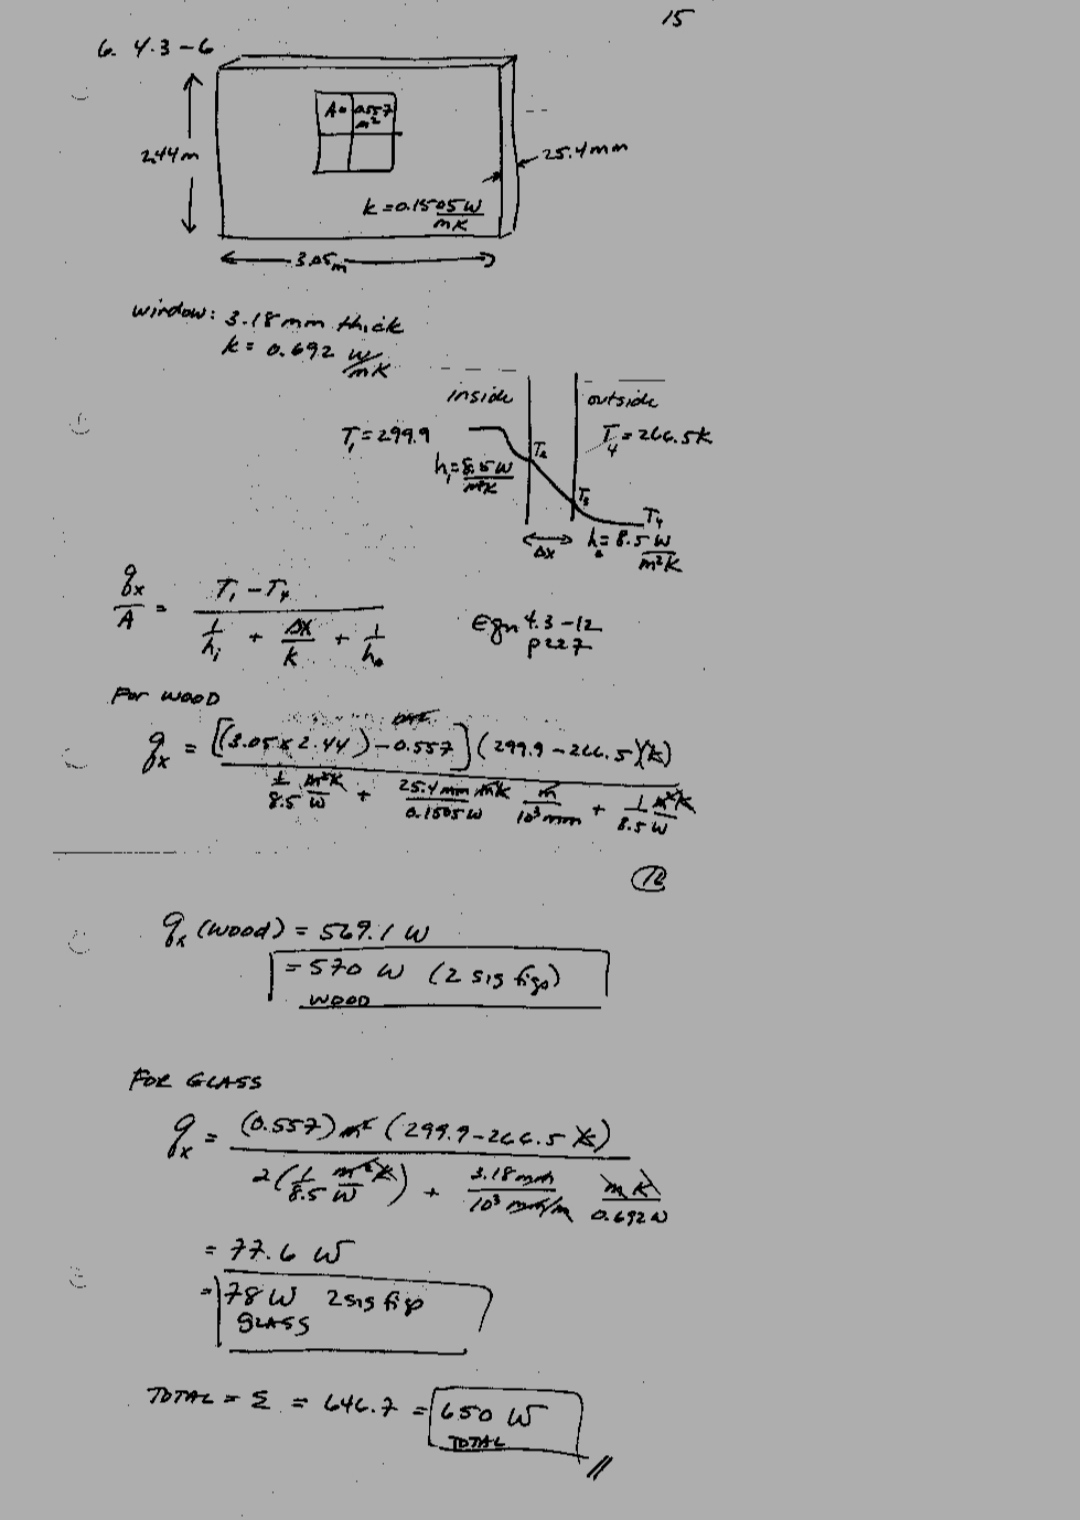 15
6. 4.3-6
A= 0.557 m²
2.44m
25.4mm
k = 0.1505 W/mK
3.05m
window: 3.18 mm thick
k = 0.692 W/mK
inside outside
T₁ = 299.9 T₄ = 266.5K
T₂
hᵢ = 8.5 W/m²K
T₃
T₄
Δx h₀ = 8.5 W/m²K
qₓ/A = (T₁ - T₄) / (1/hᵢ + Δx/k + 1/h₀) Eqn 4.3-12
p227
For WOOD
qₓ = [(3.05 x 2.44) - 0.557](299.9 - 266.5)(K)
1/8.5 m²K/W + 25.4mm mK/0.1505W m/10³mm + 1/8.5 m²K/W
16
qₓ (wood) = 569.1 W
= 570 W (2 sig figs)
WOOD
FOR GLASS
qₓ = (0.557) m² (299.9-266.5 K)
2(1/8.5 m²K/W) + 3.18mm/10³ mm/m mK/0.692W
= 77.6 W
= 78 W 2 sig figs
GLASS
TOTAL = Σ = 646.7 = 650 W
TOTAL